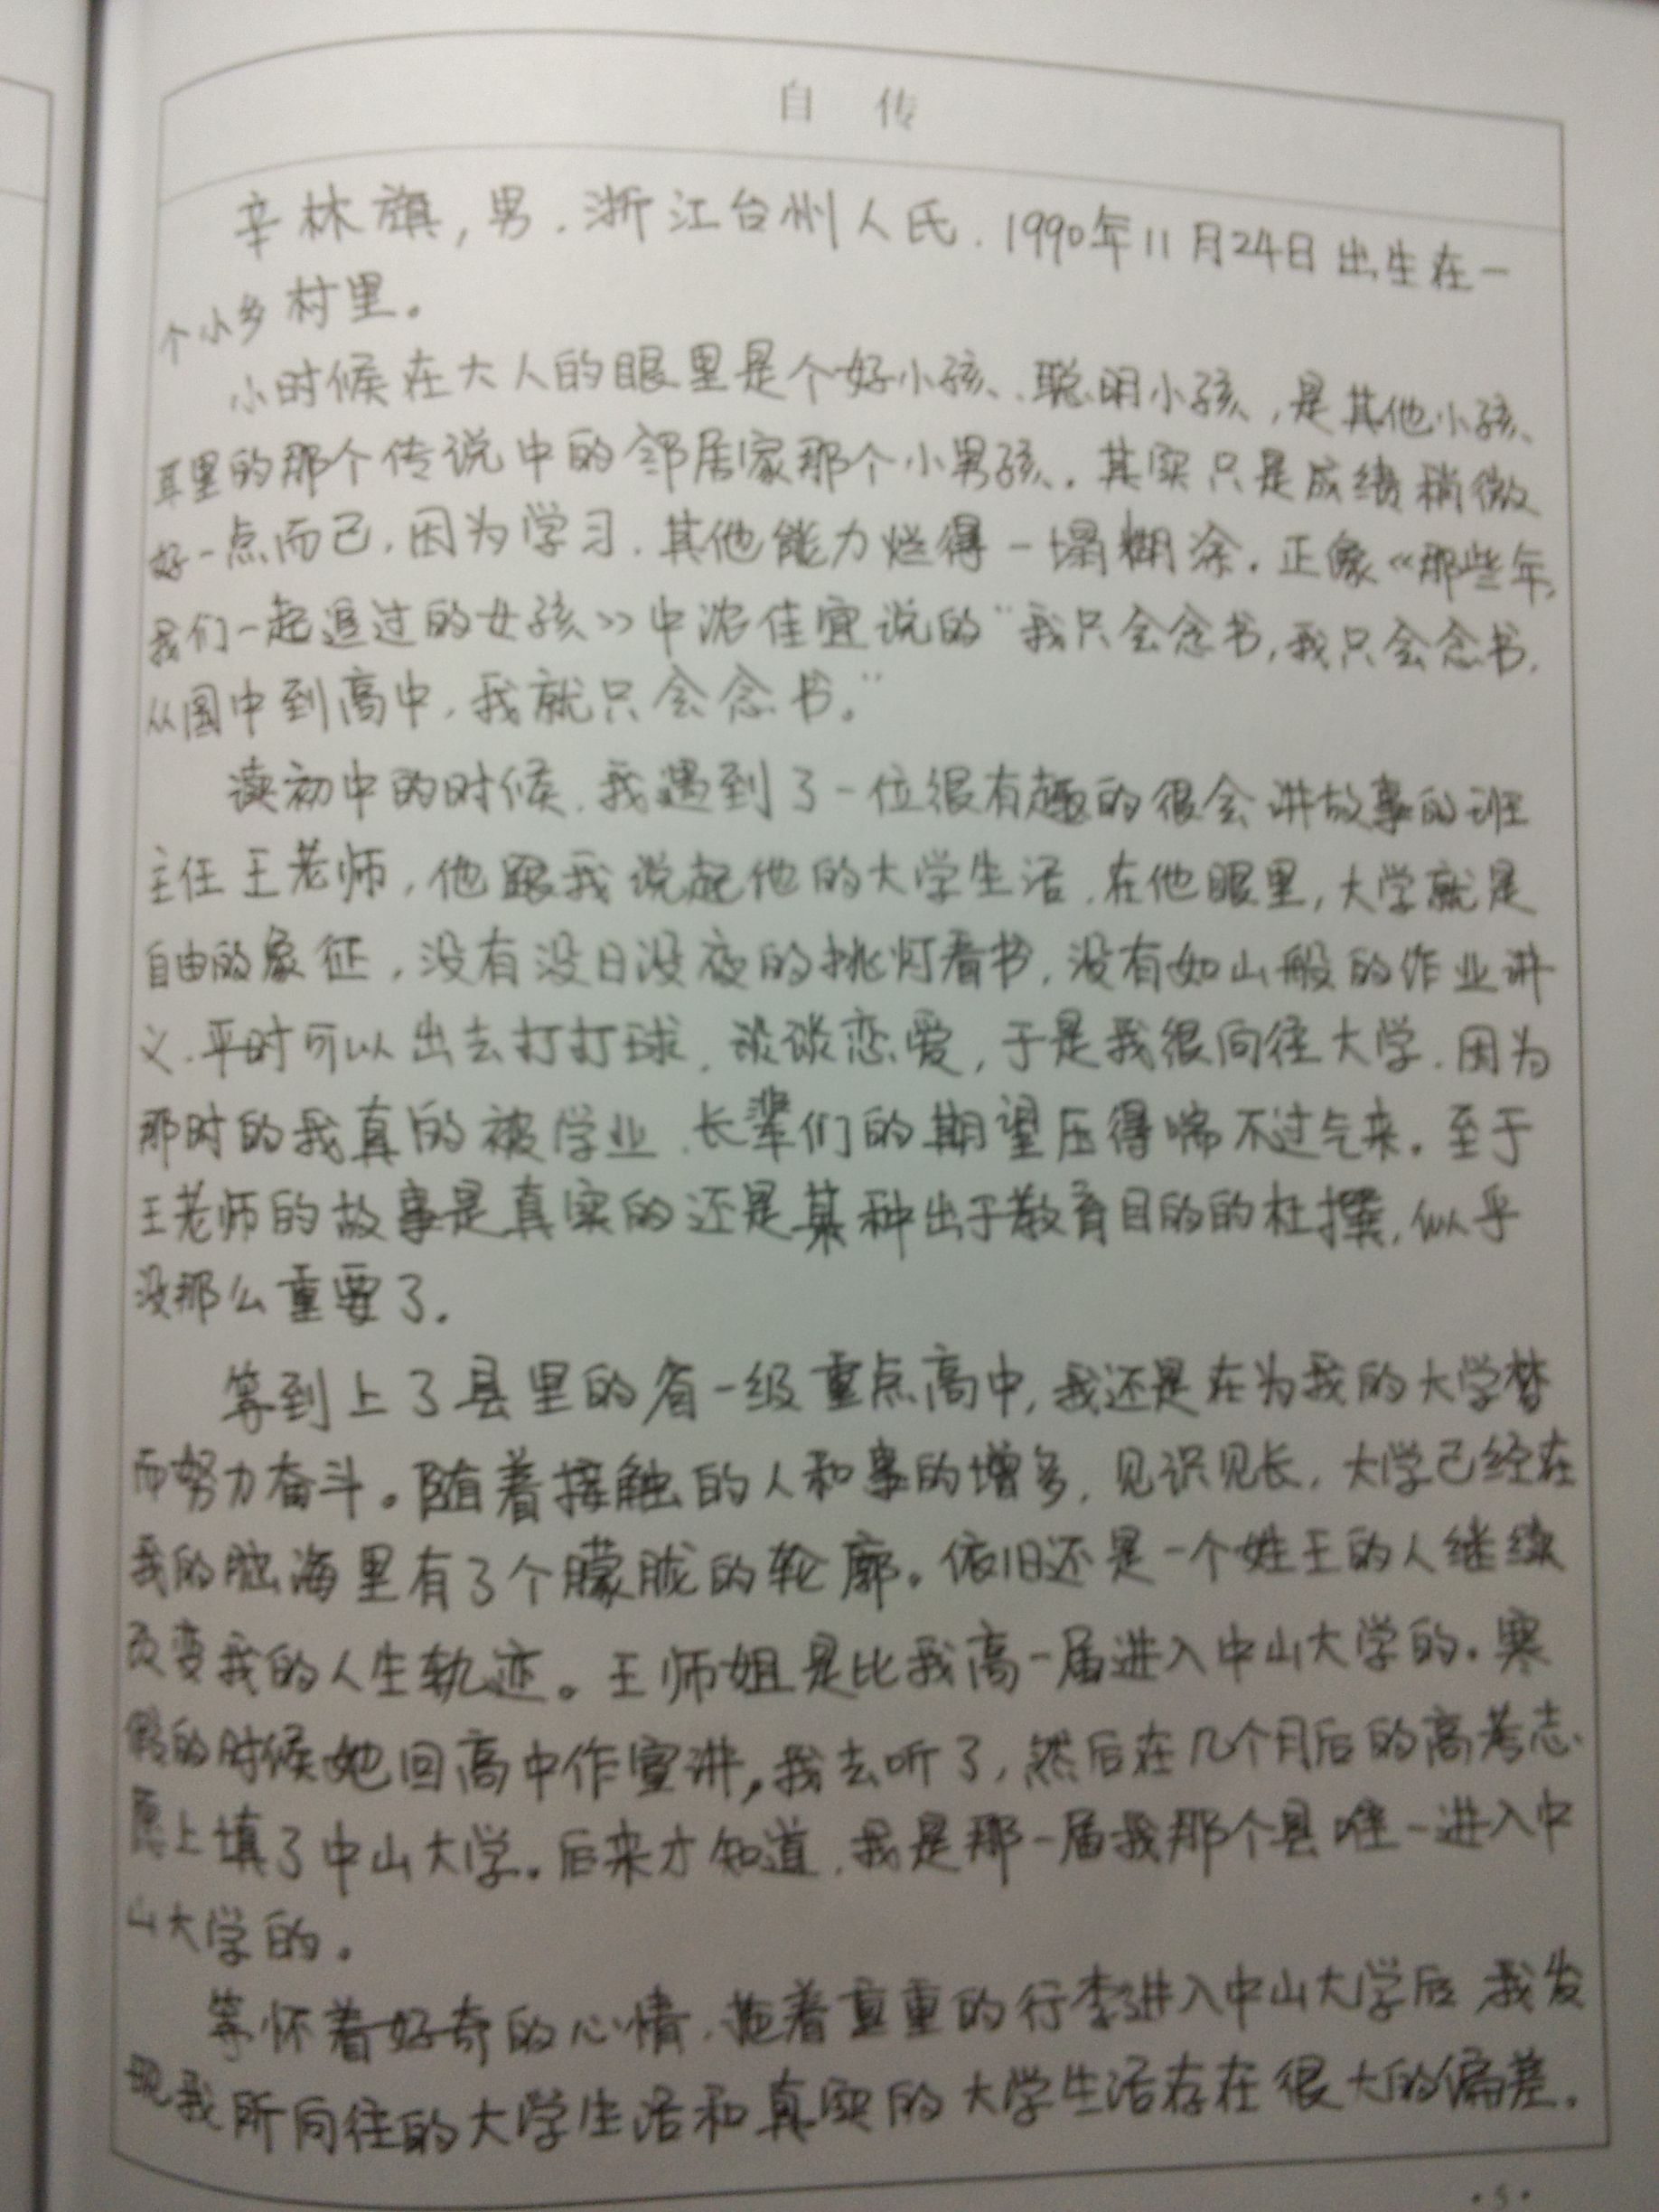 自 传
辛林旗,男.浙江台州人氏.1990年11月24日出生在一
个小乡村里。
小时候在大人的眼里是个好小孩、聪明小孩,是其他小孩
耳里的那个传说中的邻居家那个小男孩.其实只是成绩稍微
好一点而已,因为学习.其他能力烂得一塌糊涂.正像《那些年,
我们一起追过的女孩》中沈佳宜说的"我只会念书,我只会念书.
从国中到高中,我就只会念书。"
读初中的时候.我遇到了一位很有趣的很会讲故事的班
主任王老师,他跟我说起他的大学生活.在他眼里,大学就是
自由的象征,没有没日没夜的挑灯看书,没有如山般的作业讲
义.平时可以出去打打球,谈谈恋爱,于是我很向往大学.因为
那时的我真的被学业、长辈们的期望压得喘不过气来.至于
王老师的故事是真实的还是某种出于教育目的的杜撰,似乎
没那么重要了.
等到上了县里的省一级重点高中,我还是在为我的大学梦
而努力奋斗。随着接触的人和事的增多,见识见长,大学已经在
我的脑海里有了个朦胧的轮廓。依旧还是一个姓王的人继续
改变我的人生轨迹。王师姐是比我高一届进入中山大学的.寒
假的时候她回高中作宣讲,我去听了,然后在几个月后的高考志
愿上填了中山大学。后来才知道,我是那一届我那个县唯一进入中
山大学的.
等怀着好奇的心情,拖着重重的行李进入中山大学后 我发
现我所向往的大学生活和真实的大学生活存在很大的偏差.
·5·